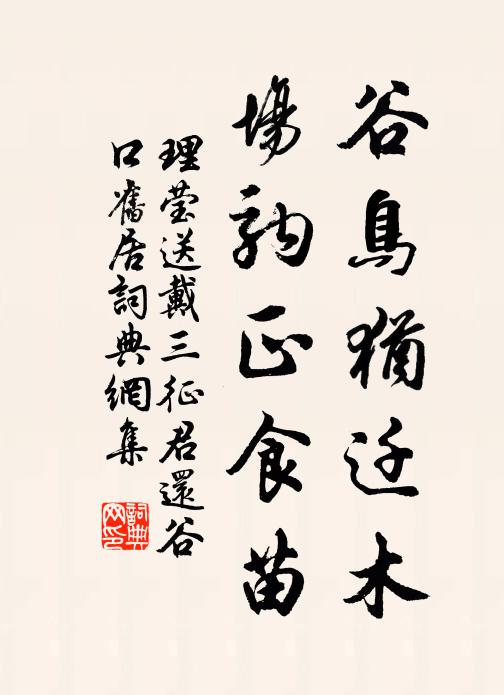 谷鳥猶迁木
場駒正食苗
理莹送戴三征君還谷
口舊居詞典網集
詞典
网印